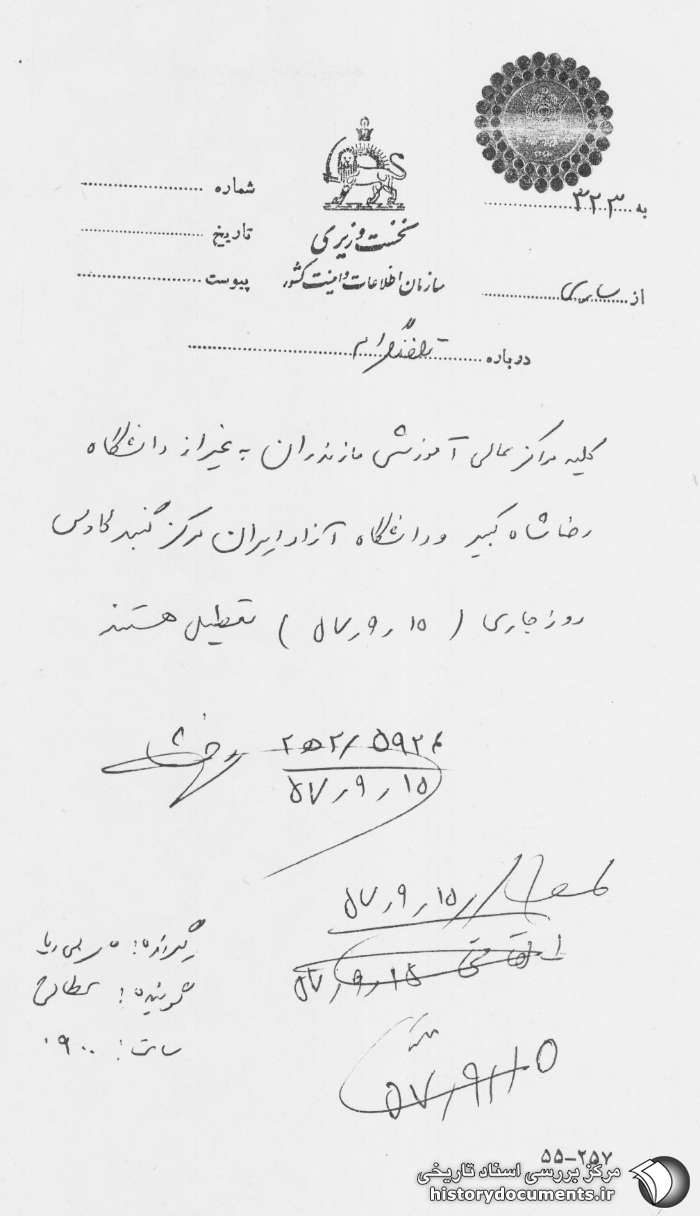 به ۳۲۳
شماره
نخست وزیری
تاریخ
سازمان اطلاعات و امنیت کشور
پیوست
از ساری
درباره تلفنگرام
کلیه مراکز عالی آموزشی مازندران به غیر از دانشگاه
رضا شاه کبیر و دانشگاه آزاد ایران مرکز گنبد کاوس
روز جاری ( ۱۵ ر ۹ ر ۵۷ ) تعطیل هستند
۲ ه ۲ / ۵۹۲۴
۱۵ ر ۹ ر ۵۷
۱۵ ر ۹ ر ۵۷
۱۵ ر ۹ ر ۵۷
گیرنده :
گوینده :
ساعت : ۰۹۰۰
۱۵ ر ۹ ر ۵۷
۵۵-۲۵۷
مرکز بررسی اسناد تاریخی
historydocuments.ir